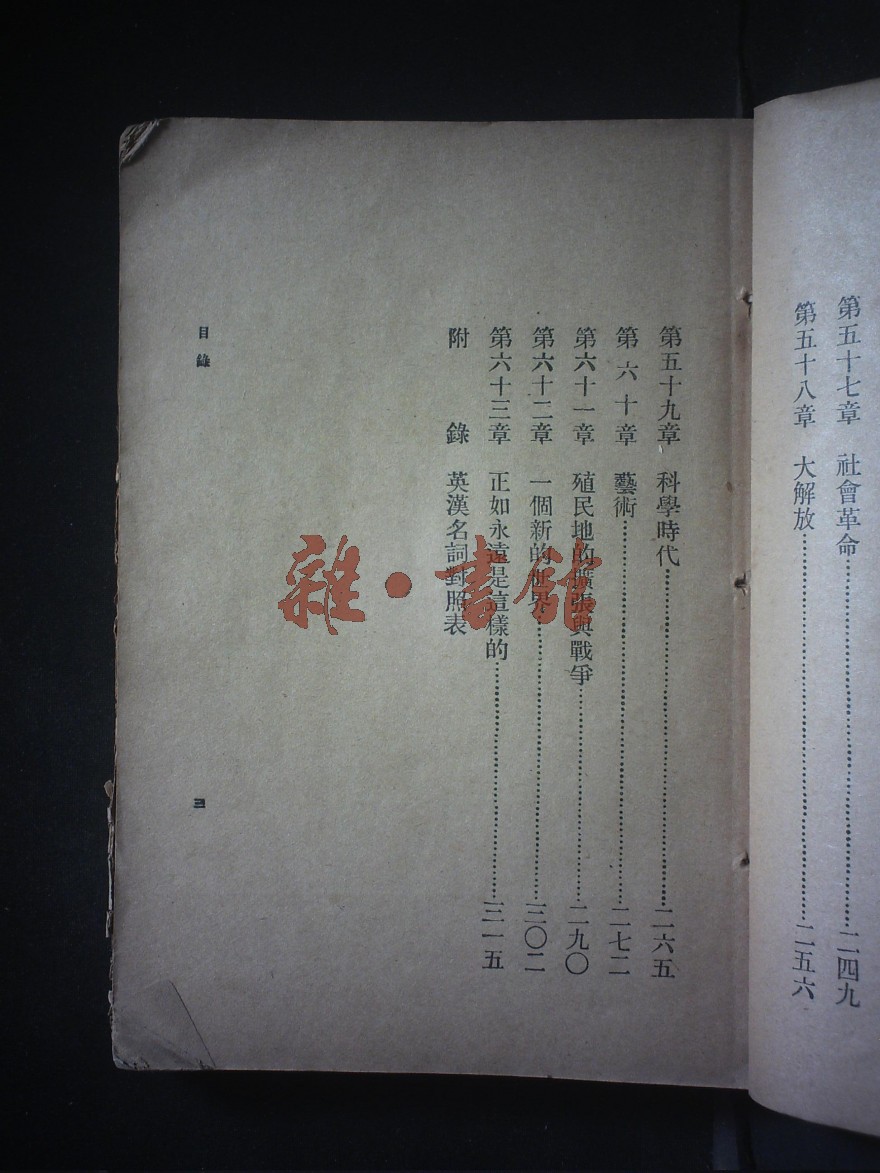 第五十七章　社會革命……二四九
第五十八章　大解放……二五六
第五十九章　科學時代……二六五
第六十章　藝術……二七二
第六十一章　殖民地的擴張與戰爭……二九〇
第六十二章　一個新的世界……三〇二
第六十三章　正如永遠是這樣的……三一五
附錄　英漢名詞對照表
目錄
三
雜·書館